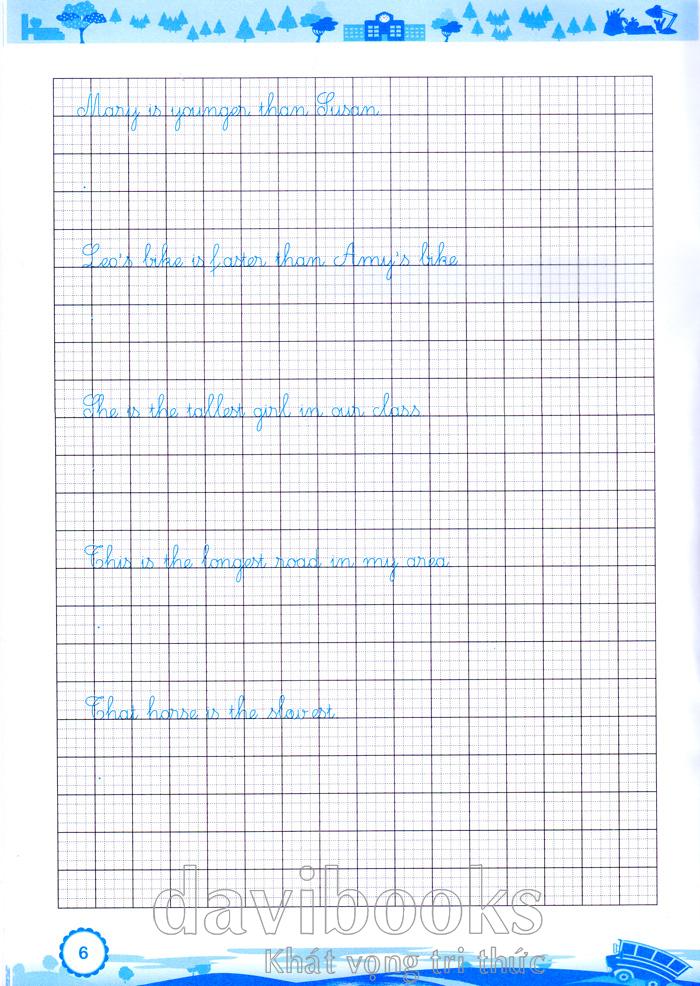 Mary is younger than Susan.
Leo's bike is faster than Amy's bike.
She is the tallest girl in our class.
This is the longest road in my area.
That horse is the slowest.
davibooks
Khát vọng tri thức
6